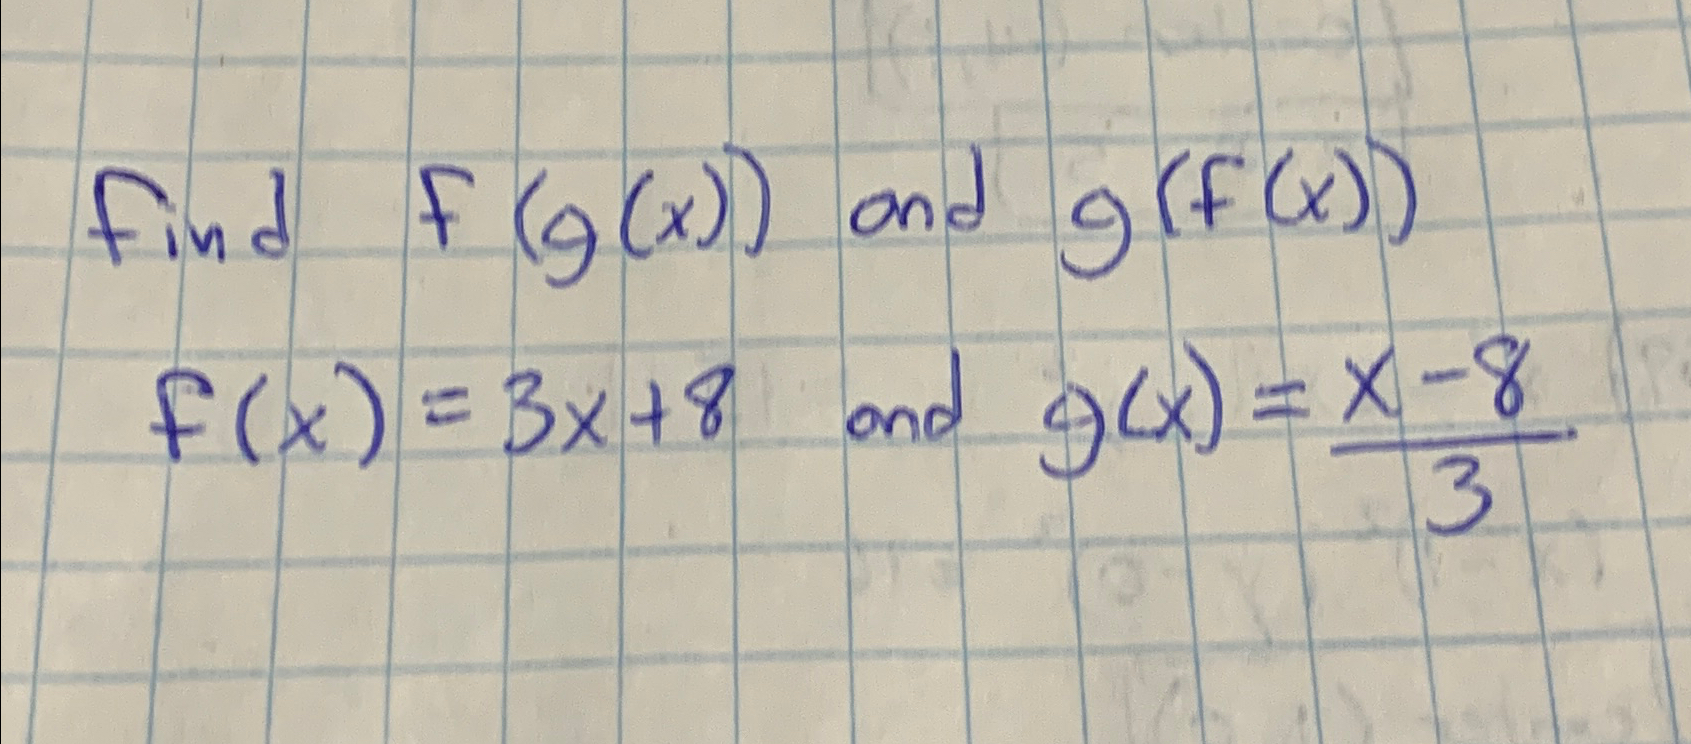 Find f(g(x)) and g(f(x))
f(x) = 3x+8 and g(x) = \frac{x-8}{3}